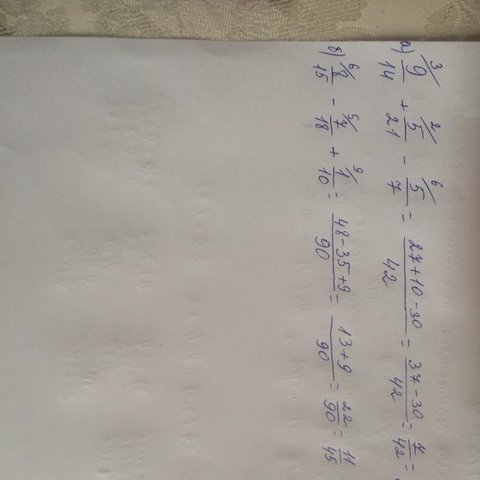 а) 3/ 9/14 + 2/ 5/21 - 6/ 5/7 = (27+10-30)/42 = (37-30)/42 = 7/42 =
б) 6/ 8/15 - 5/ 7/18 + 9/ 1/10 = (48-35+9)/90 = (13+9)/90 = 22/90 = 11/45